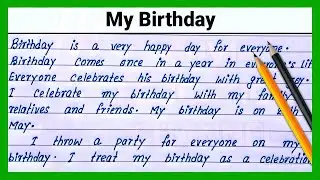 My Birthday
Birthday is a very happy day for everyone.
Birthday comes once in a year in everyone's lif
Everyone celebrates his birthday with great joy.
I celebrate my birthday with my family
relatives and friends. My birthday is on
May.
I throw a party for everyone on my
birthday. I treat my birthday as a celebration